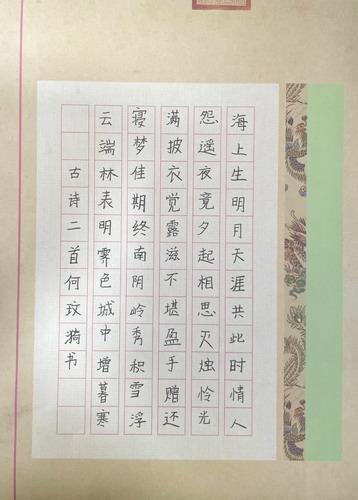 海上生明月天涯共此时情人
怨遥夜竟夕起相思灭烛怜光
满披衣觉露滋不堪盈手赠还
寝梦佳期终南阴岭秀积雪浮
云端林表明霁色城中增暮寒
古诗二首何玟漪书